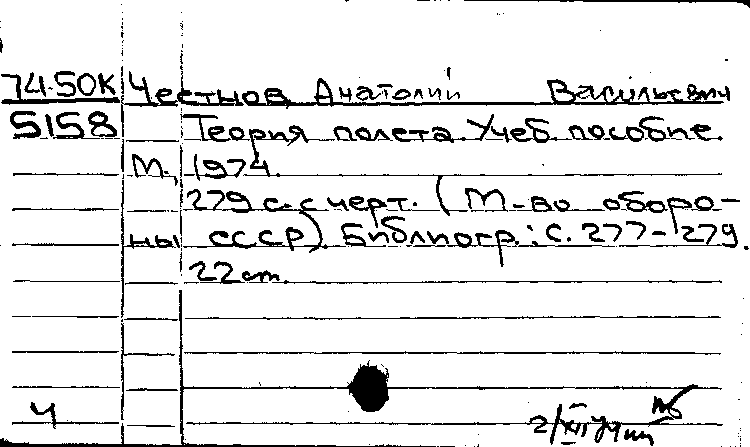 74-50К Честнов Анатолий Васильевич
5158 Теория полета. Учеб. пособие.
М., 1974.
279 с. с черт. (М-во оборо-
ны СССР). Библиогр.: с. 277-279.
22 см.
Ч